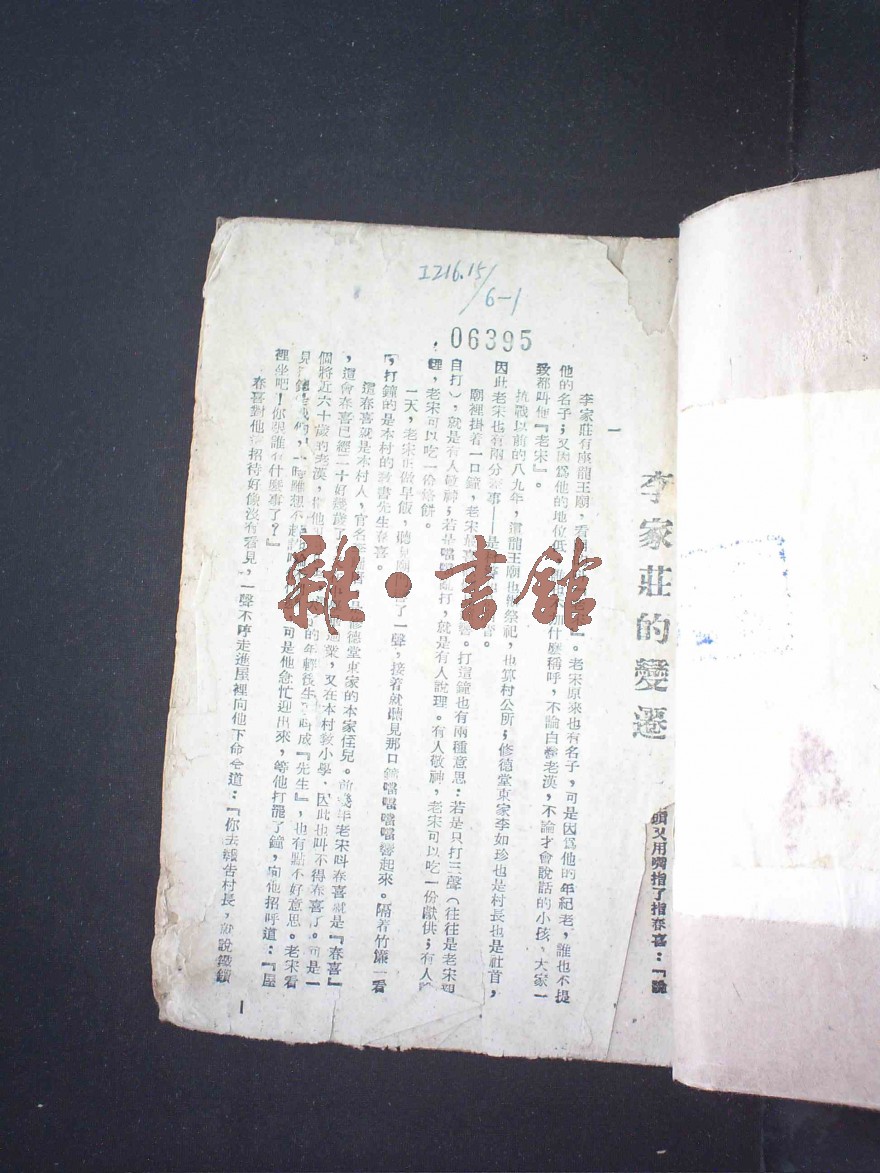 I216.15/6-1
06395
雜·書館
李家莊的變遷
一
李家莊有座龍王廟，看
』。老宋原來也有名子，可是因爲他的年紀老，誰也不提
他的名子；又因爲他的地位低
什麽稱呼，不論白
老漢，不論才會說話的小孩，大家一
致都叫他『老宋』。
抗戰以前的八九年，這龍王廟也
祭祀，也算村公所；修德堂東家李如珍也是村長也是社首，
因此老宋也有兩分
事——
廟裡掛着一口鐘，老宋
打這鐘也有兩種意思：若是只打三聲（往往是老宋
自打），就是有人敬神；若是噹噹亂打，就是有人說理。有人敬神，老宋可以吃一份獻供；有人
理，老宋可以吃一份烙餅。
一天，老宋正做早飯，聽見
了一聲，接着就聽見那口鐘噹噹噹噹響起來。隔着竹簾一看
，打鐘的是本村的敎書先生春喜。
這春喜就是本村人，官名
修德堂東家的本家侄兒。前幾年老宋叫春喜就是『春喜』
，這會春喜已經二十好幾歲了
業，又在本村敎小學，因此也叫不得春喜了。可是一
個將近六十歲的老漢，
的年輕後生
成『先生』，也有點不好意思。老宋看
見
一時雖想不起
可是他急忙迎出來，等他打罷了鐘，向他招呼道：『屋
裡坐吧！你跟誰有什麽事了？』
春喜對他
招待好像沒有看見，一聲不哼走進屋裡向他下命令道：『你去報告村長，就說鐵鎖
1
又用嘴指了指春喜：『